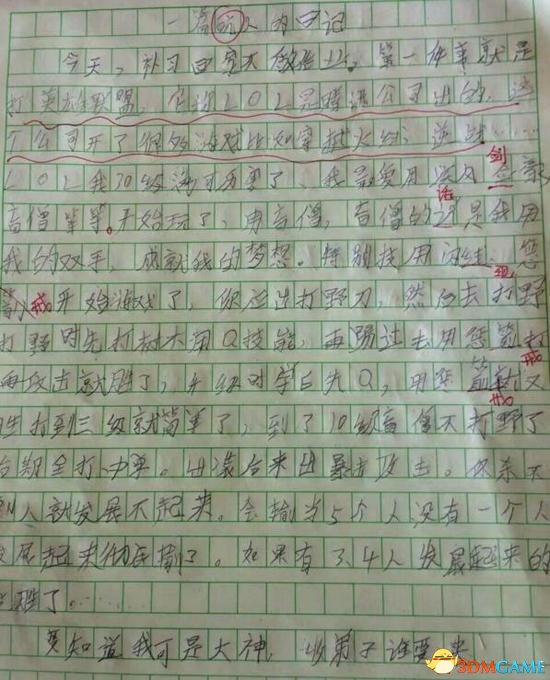 一名玩人的日记
今天，补习回家不敢怠慢。第一件事就是
打英雄联盟，它称LOL是腾讯公司出的，这
个公司开了很多游戏比如穿越火线、逆战……
LOL我30级满可历害了，我最爱用疾风剑豪
盲僧等等。开始玩了，用盲僧，盲僧的话是我用
我的双手，成就我的梦想。特别技用闪现、惩
戒开始游戏了，你应出打野刀，然后去打野
打野时先打树大用Q技能，再踢过去用惩戒
再攻击就胜了，升级时学E先Q，用惩戒
打到三级就简单了，到了10级盲僧不打野了
后期全打中单。出装后来出暴击攻击。你杀不
到人就发展不起来。会输当5个人没有一个人
发展起来彻底输了。如果有3、4人发展起来的
胜了……
莫知道我可是大神，收弟子谁要来
3DMGAME